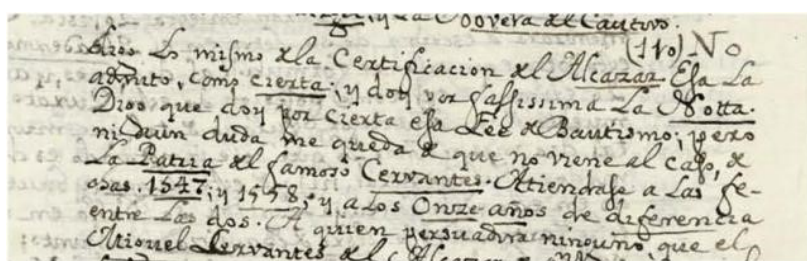 y La del Cautivo.
(110) No
Lo mismo de la Certificacion del Alcazar Esa La
admito, como cierta; y doy por falsissima La Notta.
Dios que doy por cierta esa Fee de Bautismo; pero
ni aun duda me queda de que no viene al caso, de
La Patria del famoso Cervantes. Atiendase a Las fe-
chas. 1547; y 1558; y a los Onze años de diferencia
entre Las dos. A quien persuadirà ninguno, que el
Miguel Cervantes del Alcazar